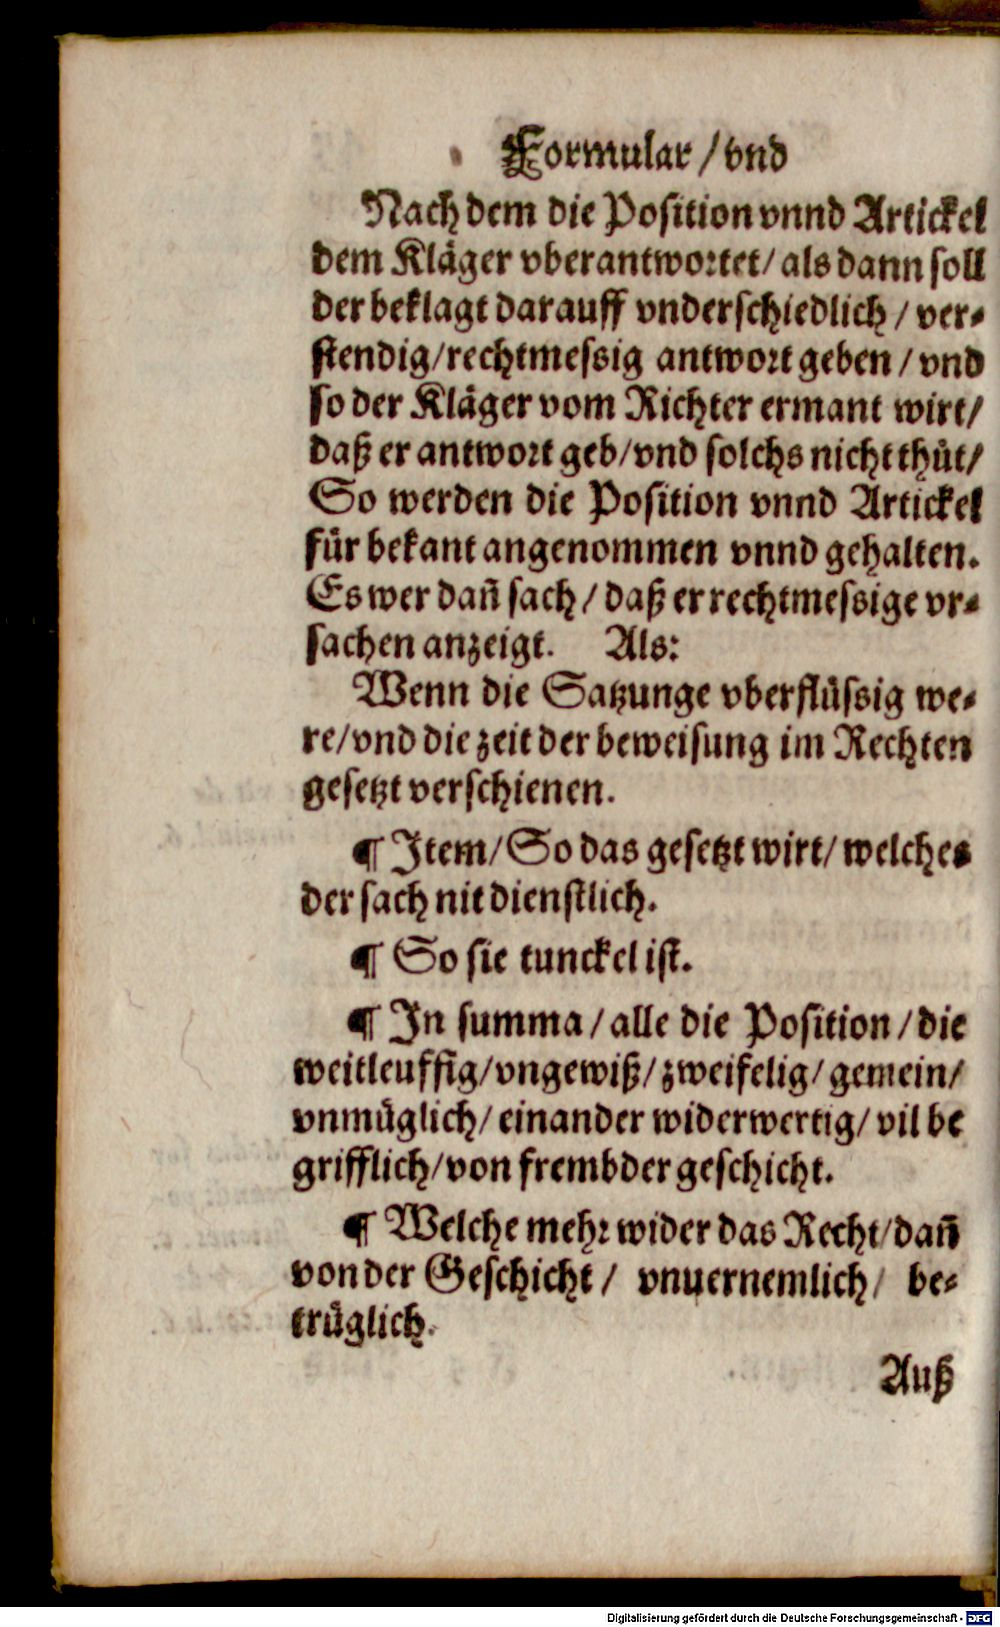 Formular / vnd
Nach dem die Position vnnd Artickel
dem Kläger vberantwortet / als dann soll
der beklagt darauff vnderschiedlich / ver⸗
stendig / rechtmessig antwort geben / vnd
so der Kläger vom Richter ermant wirt /
daß er antwort geb / vnd solchs nicht thüt /
So werden die Position vnnd Artickel
für bekant angenommen vnnd gehalten.
Es wer dañ sach / daß er rechtmessige vr⸗
sachen anzeigt. Als:
Wenn die Satzunge vberflüssig we⸗
re / vnd die zeit der beweisung im Rechten
gesetzt verschienen.
¶ Item / So das gesetzt wirt / welches
der sach nit dienstlich.
¶ So sie tunckel ist.
¶ In summa / alle die Position / die
weitleuffig / vngewiß / zweifelig / gemein /
vnmüglich / einander widerwertig / vil be
grifflich / von frembder geschicht.
¶ Welche mehr wider das Recht / dañ
von der Geschicht / vnuernemlich / be⸗
trüglich.
Auß
Digitalisierung gefördert durch die Deutsche Forschungsgemeinschaft - DFG